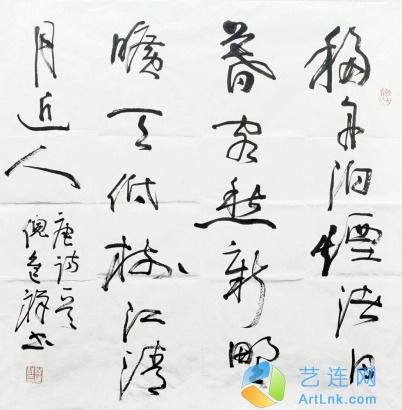 移舟泊煙渚日
暮客愁新野
曠天低树江清
月近人
唐诗一首
倪祥书
艺连网
ArtLnk.com